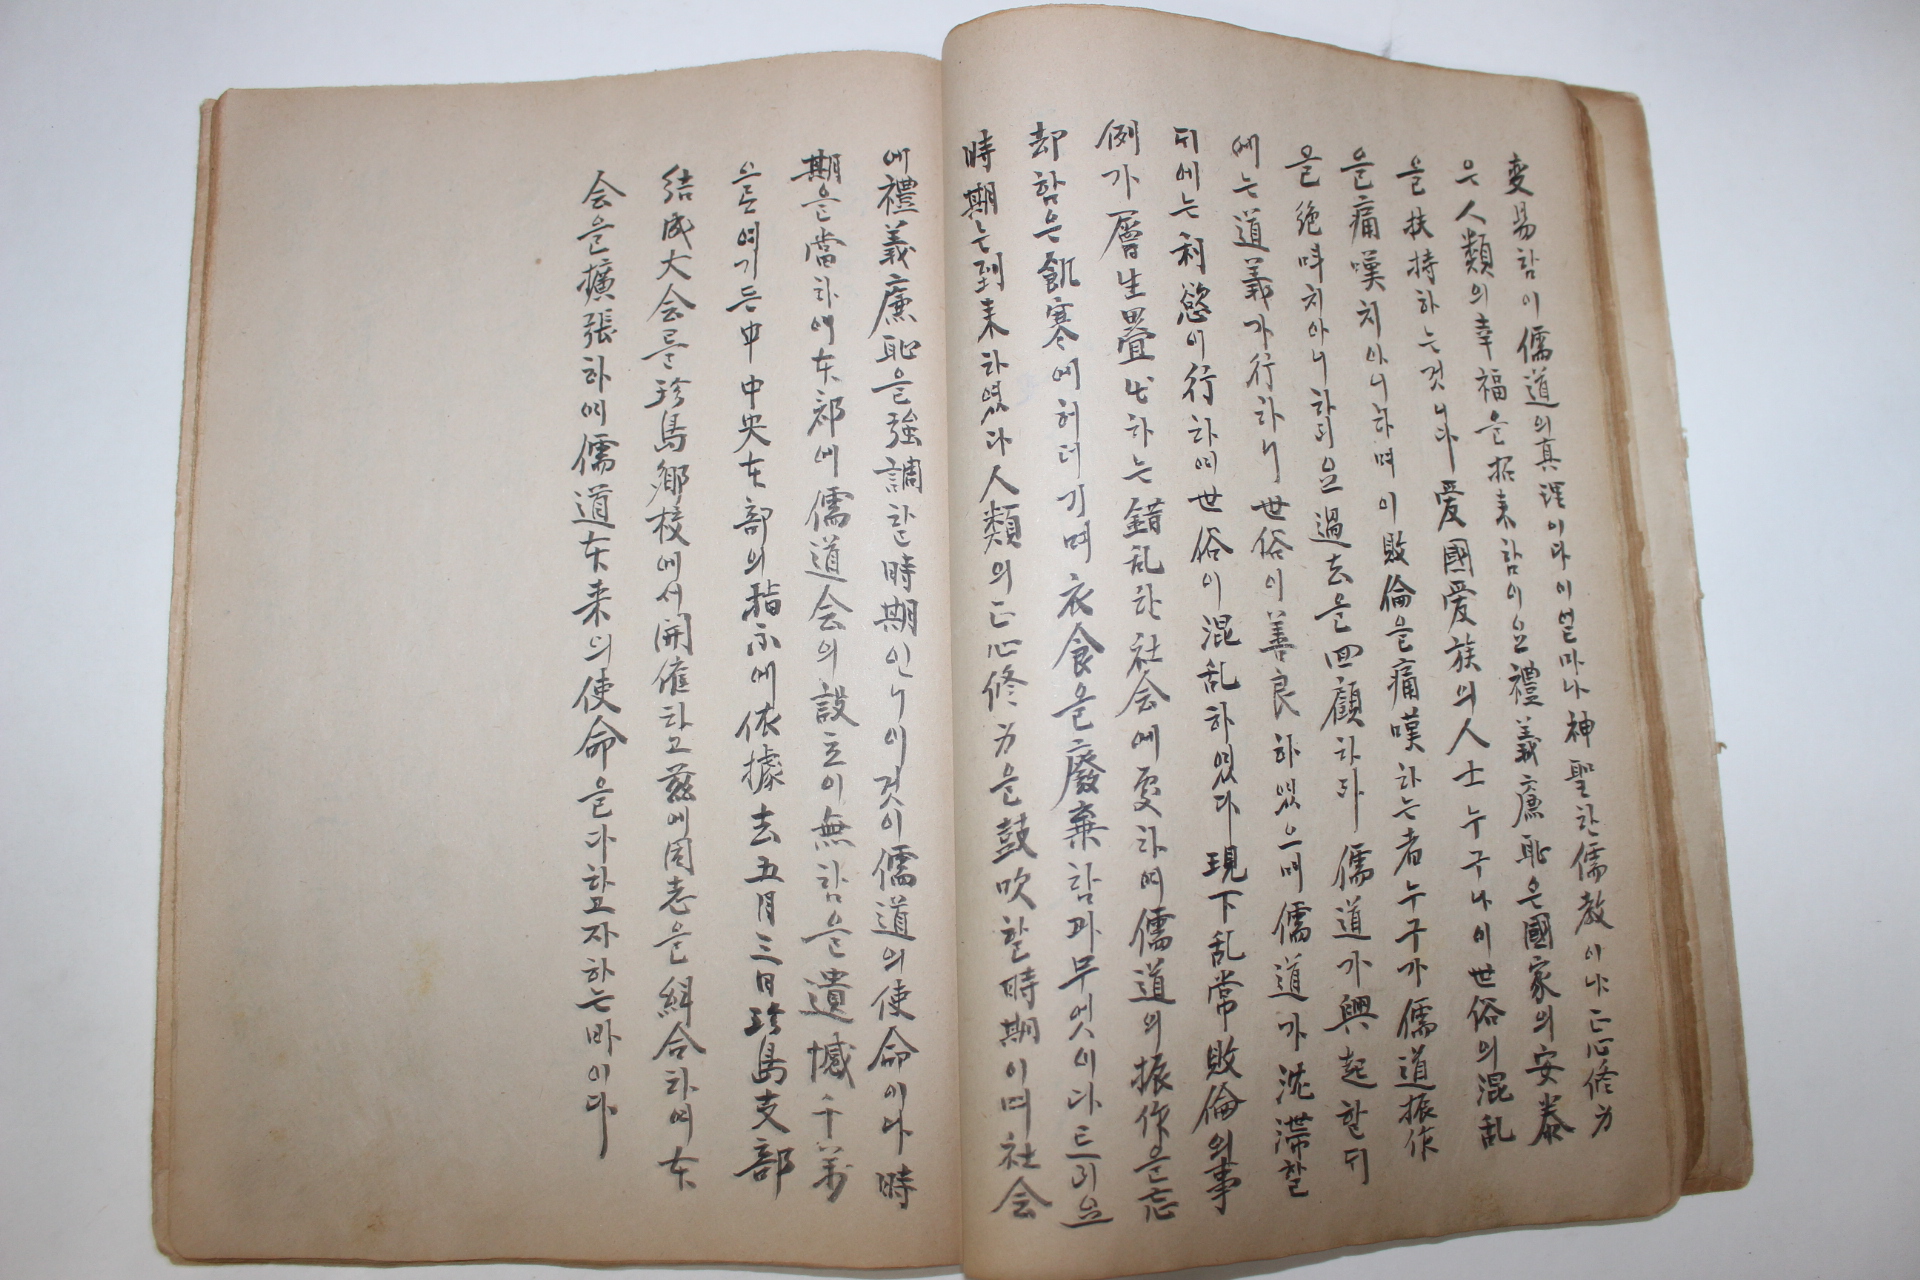 変易함이儒道의真理이다이얼마나神聖한儒教이냐正心修身
은人類의幸福을招来함이요禮義廉恥은國家의安泰
을扶持하는것니다愛國愛族의人士누구나이世俗의混乱
을痛嘆치아니하며이敗倫을痛嘆하는者누구가儒道振作
을絶叫치아니하리요過去을回顧하라儒道가興起할뒤
에는道義가行하니世俗이善良하였으며儒道가沈滞할
뒤에는利慾이行하여世俗이混乱하였다現下乱常敗倫의事
例가層生疊出하는錯乱한社会에處하여儒道의振作을忘
却함은飢寒에허더기며衣食을廢棄함과무엇이다르리요
時期는到来하였다人類의正心修身을鼓吹할時期이며社会
에禮義廉恥을強調할時期인니이것이儒道의使命이다時
期을當하여本郡에儒道会의設立이無함을遺憾千萬
으로여기든中中央本部의指示에依據去五月三日珍島支部
結成大会를珍島鄕校에서開催하고玆에同志을糾合하여本
会을擴張하여儒道本来의使命을다하고자하는바이다